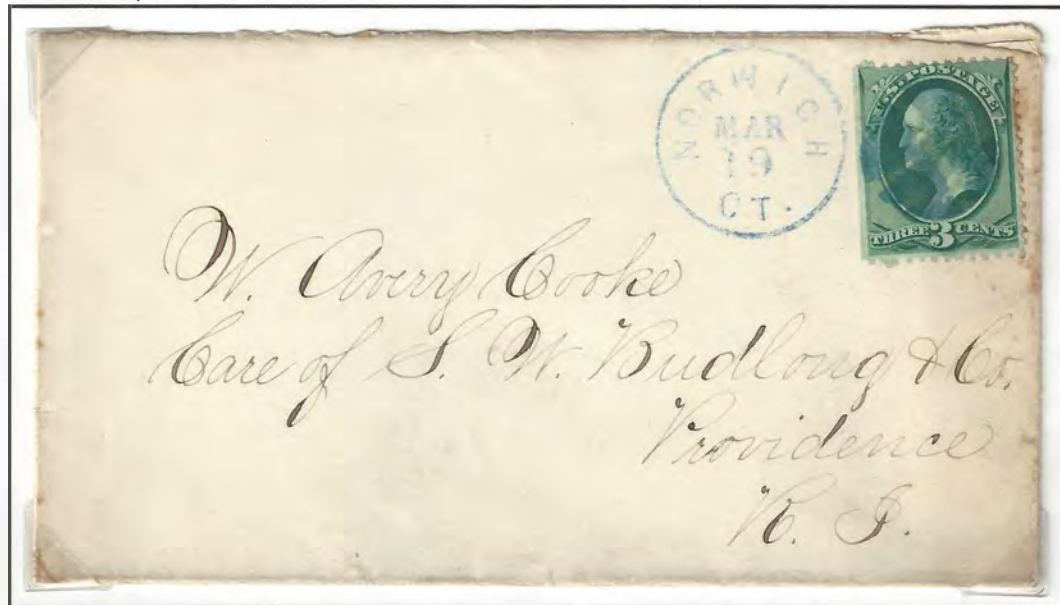 NORWICH
MAR
19
CT.
U.S. POSTAGE
THREE 3 CENTS
W. Avery Cooke
Care of S. W. Budlong & Co.
Providence
R. I.